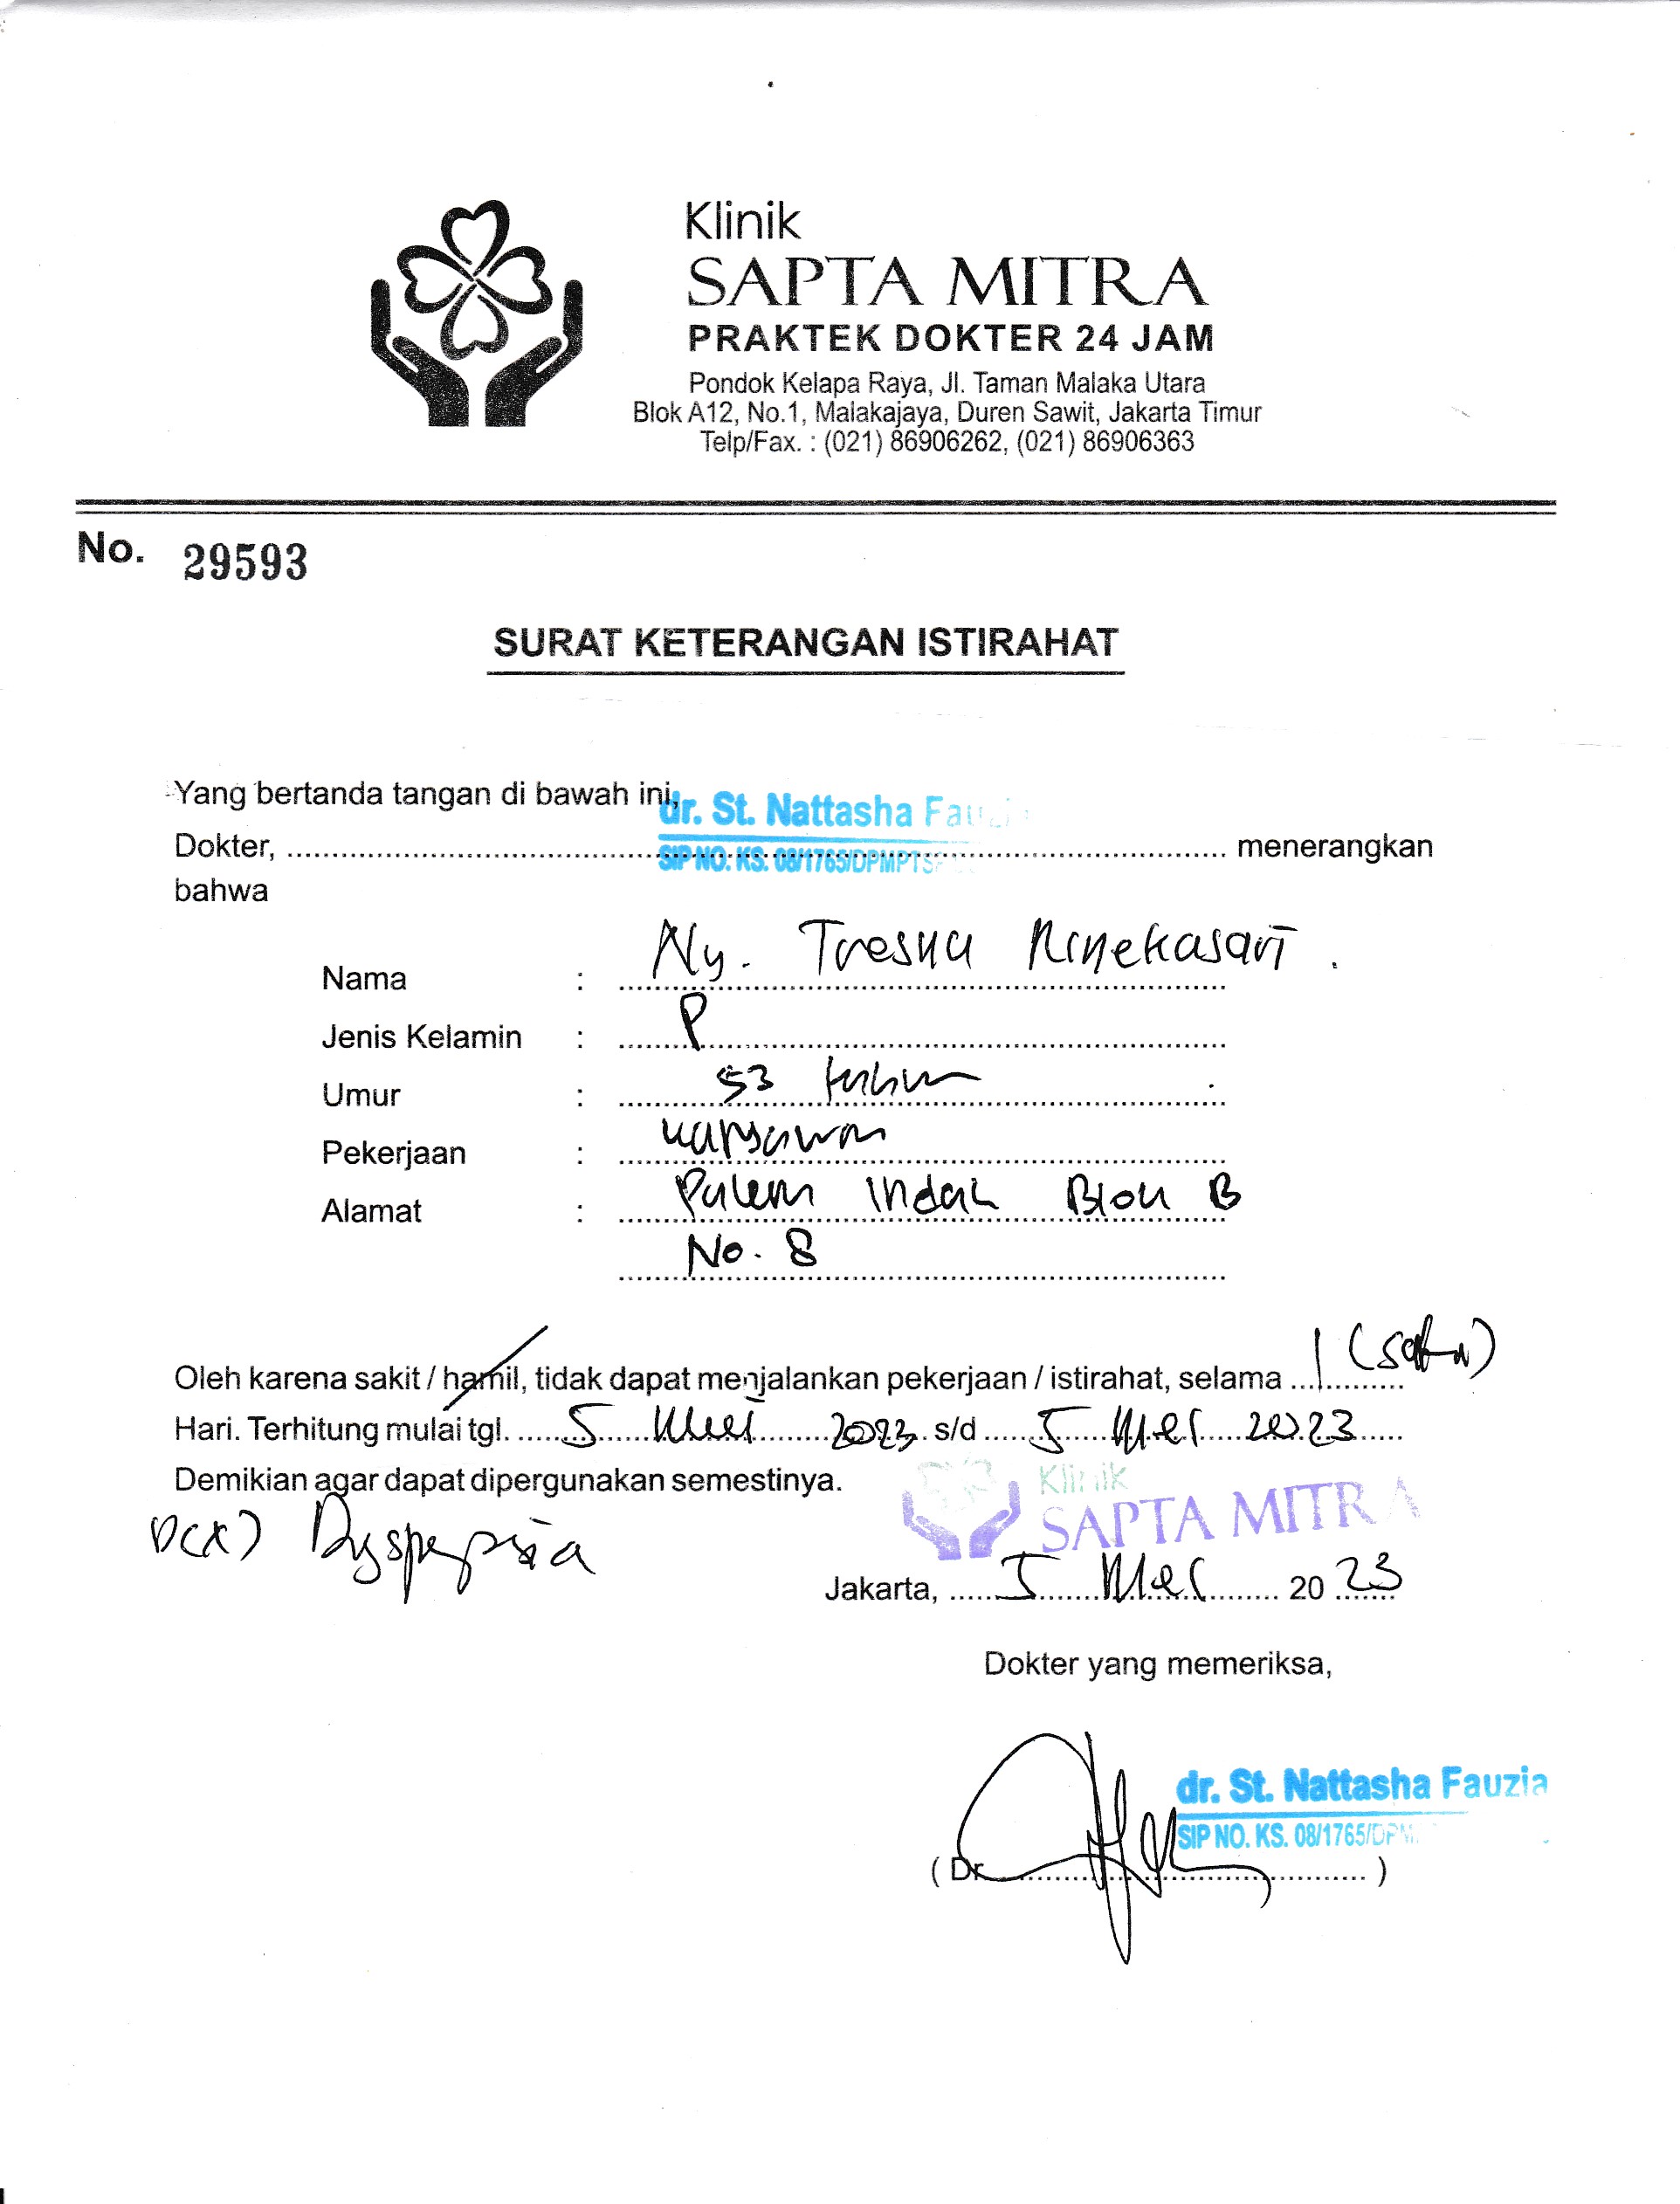 Klinik
SAPTA MITRA
PRAKTEK DOKTER 24 JAM
Pondok Kelapa Raya, Jl. Taman Malaka Utara
Blok A12, No.1, Malakajaya, Duren Sawit, Jakarta Timur
Telp/Fax. : (021) 86906262, (021) 86906363
No. 29593
SURAT KETERANGAN ISTIRAHAT
Yang bertanda tangan di bawah ini,
dr. St. Nattasha Fauzia
Dokter, menerangkan
SIP NO. KS. 08/1765/DPMPTSP
bahwa
Nama : Ny. Tresna Rinekasari.
Jenis Kelamin : P
Umur : 53 tahun
Pekerjaan : Karyawan
Alamat : Palem Indah Blok B
No. 8
Oleh karena sakit / hamil, tidak dapat menjalankan pekerjaan / istirahat, selama 1 (satu)
Hari. Terhitung mulai tgl. 5 Mei 2023 s/d 5 Mei 2023
Demikian agar dapat dipergunakan semestinya.
Klinik
SAPTA MITRA
D(x) Dyspepsia
Jakarta, 5 Mei 2023
Dokter yang memeriksa,
dr. St. Nattasha Fauzia
SIP NO. KS. 08/1765/DPM
( Dr )